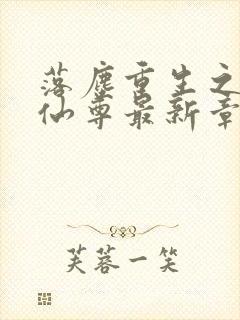 落尘重生之
仙尊最新章
芙蓉一笑